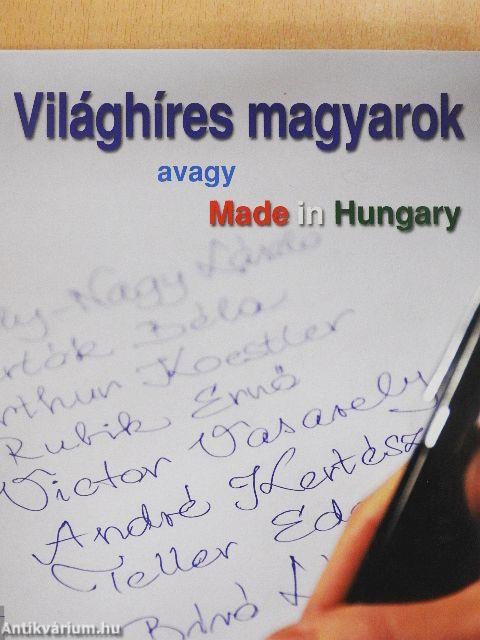 Világhíres magyarok
avagy
Made in Hungary
ly-Nagy László
rtók Béla
rthur Koestler
Rubik Ernő
Victor Vasarely
André Kertész
Teller Ede
Báró
Antikvárium.hu